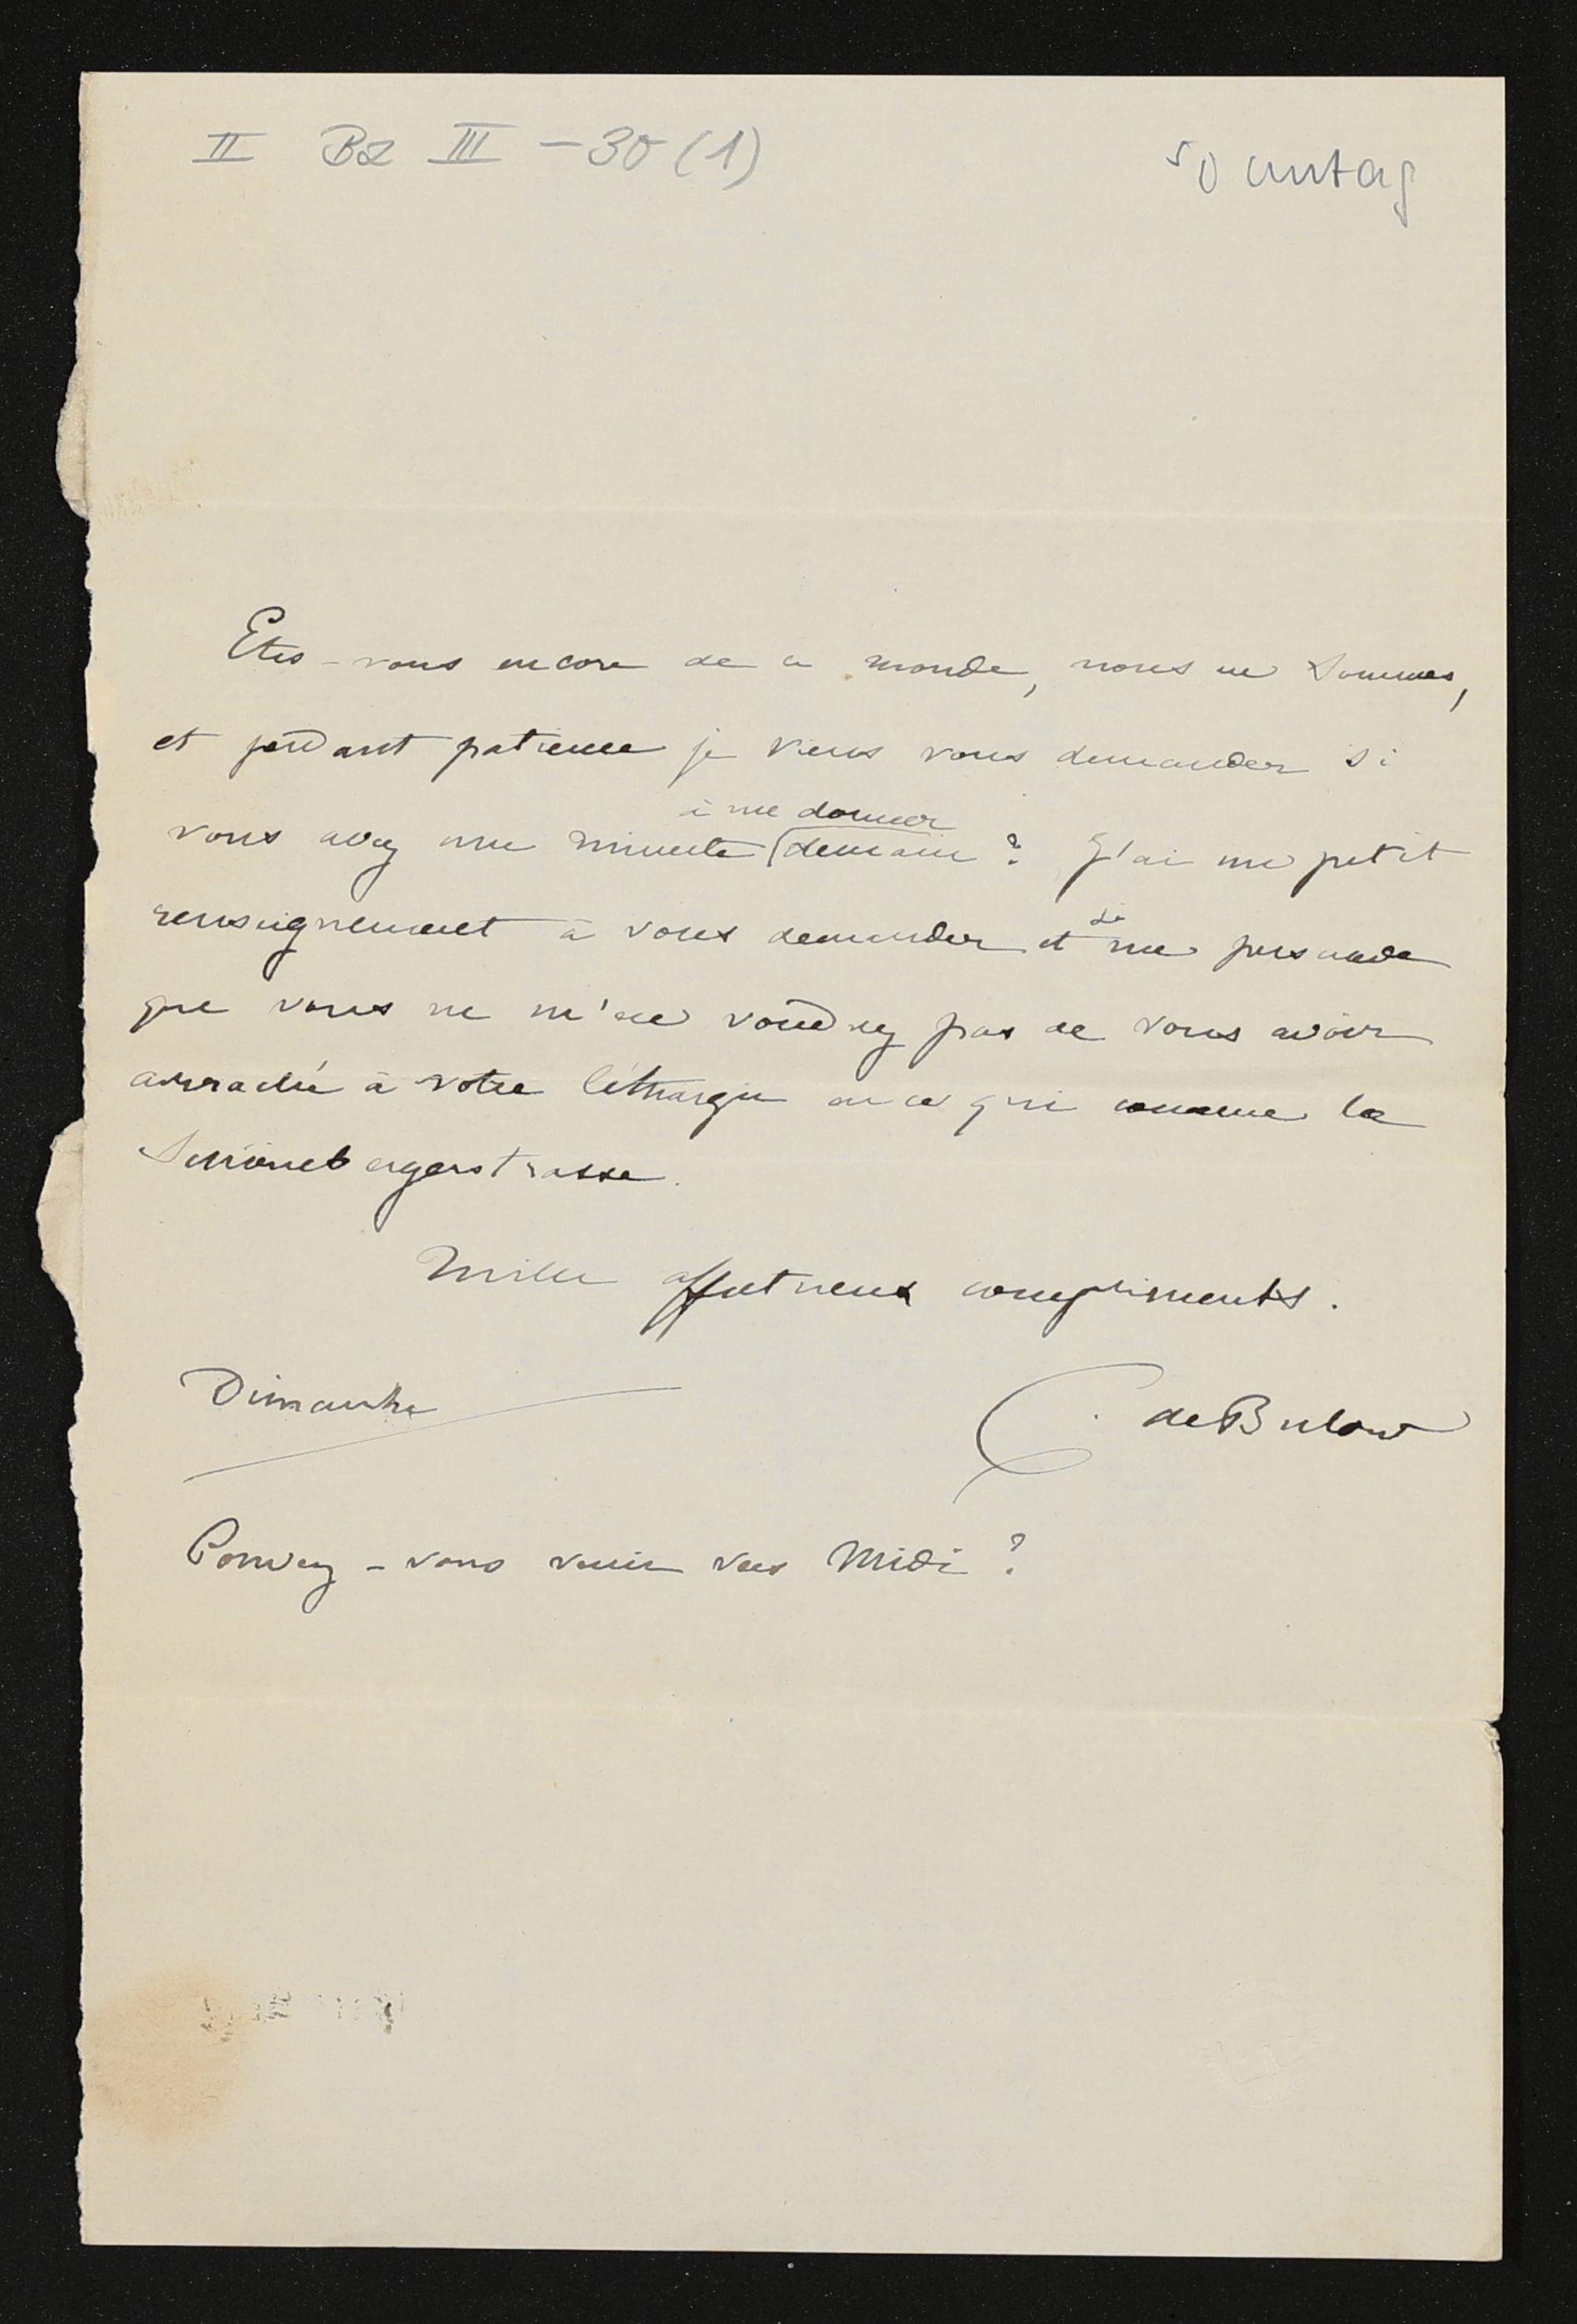 II Bz III - 30 (1)
Sonntag
Etes-vous encore de ce monde, nous en sommes,
et perdant patience je viens vous demander si
à me donner
vous avez une minute demain? J'ai un petit
renseignement à vous demander et me persuade
que vous ne m'en voudrez pas de vous avoir
arraché à votre léthargie en ce qui concerne la
Schönebergerstrasse.
Mille affectueux compliments.
Dimanche
C. de Bulow
Pouvez-vous venir vers Midi?